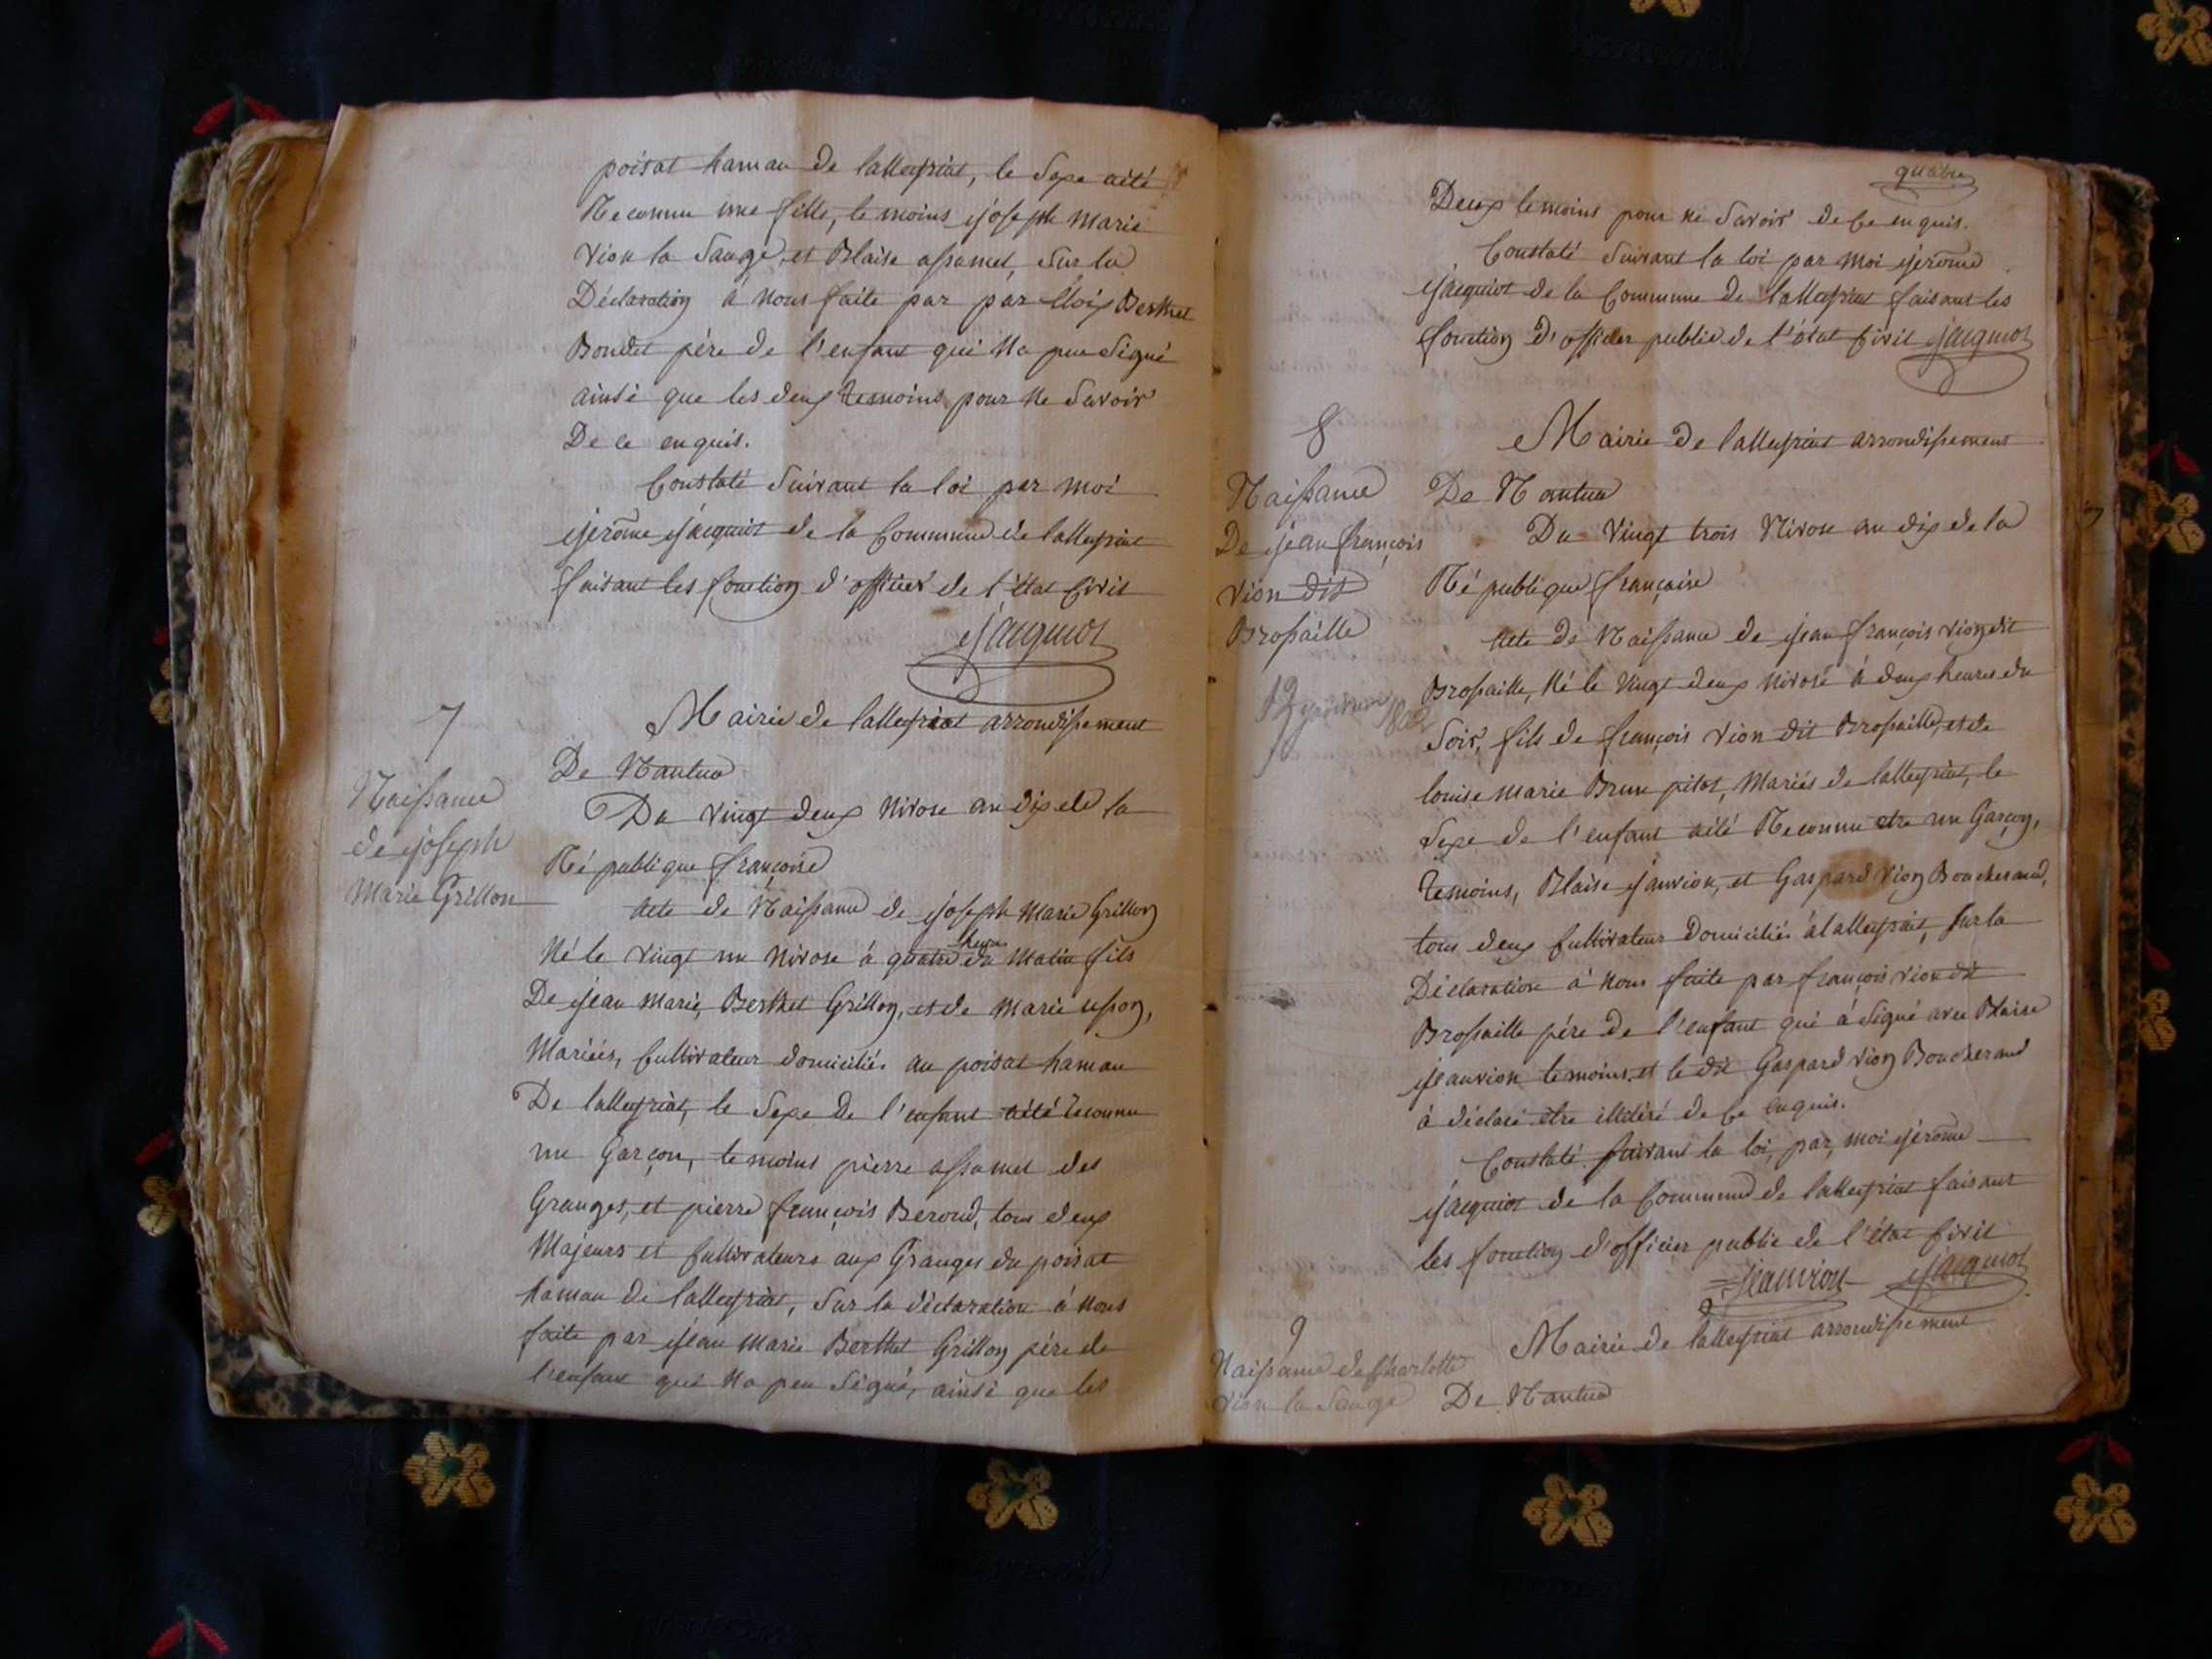 poisat hamau de lalleyriat, le Sexe aété
Reconnu une fille, temoins joseph marie
Vion la Sauge, et Blaise assamet, Sur la
Déclaration à nous faite par par Eloix Berthet
Boudet pére de l'enfant qui na peu Signé
ainsi que les deux temoins pour ne Savoir
De ce enquis.
Constaté Suivant la loi par moi
jerôme jacquiot de la Commune de lalleyriat
faisant les fonction d'officier de l'état Civil
jacquiot
7
Naissance
de joseph
Marie Grillon
Mairie de lalleyriat arrondissement
De Nantua
Du vingt deux nivose an dix de la
République françoise
acte de Naissance de joseph Marie Grillon
heures
Né le vingt un nivose à quatre du matin fils
De jean marie, Berthet Grillon, et de marie
Mariées, Cultivateur domiciliés au poisat hamau
De lalleyriat, le Sexe de l'enfant aété reconnu
un Garçon, temoins pierre assamet des
Granges, et pierre françois Beroud, tous deux
Majeurs et Cultivateurs aux Granges du poisat
hamau de lalleyriat, Sur la déclaration à nous
faite par jean marie Berthet Grillon pére de
l'enfant qui na peu Signé, ainsi que les
quatre
Deux temoins pour ne Savoir de Ce enquis.
Constaté Suivant la loi par moi jerôme
jacquiot de la Commune de lalleyriat faisant les
fonction d'officier public de l'état Civil jacquiot
8
Naissance
De jean françois
Vion dit
Brossaille
12 janvier 1802
Mairie de lalleyriat arrondissement
De Nantua
Du Vingt trois Nivose an dix de la
République françaire
acte de Naissance de jean françois vion dit
Brossaille, Né le vingt deux nivose à deux heures du
Soir, fils de françois vion dit Brossaille, et de
louise marie Brun pitot, Mariés de lalleyriat, le
Sexe de l'enfant aété Reconnu etre un Garçon,
temoins, Blaise jeanvion, et Gaspard Vion Boucherand,
tous deux Cultivateur Domiciliés à lalleyriat, Sur la
Déclaration à nous faite par françois vion dit
Brossaille pére de l'enfant qui à Signé avec Blaise
jeanvion temoins, et le dit Gaspard Vion Boucherand
à déclaré être illéiré de Ce enquis.
Constaté suivant la loi, par, moi jerôme
jacquiot de la Commune de lalleyriat faisant
les fonction d'officier public de l'état Civil
jeanvion jacquiot
9
Naissance de Charlotte
Vion la Sauge
Mairie de lalleyriat arrondissement
De Nantua